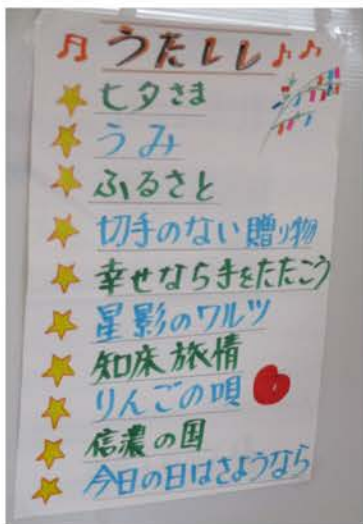 うたしし
七夕さま
うみ
ふるさと
切手のない贈り物
幸せなら手をたたこう
星影のワルツ
知床旅情
りんごの唄
信濃の国
今日の日はさようなら